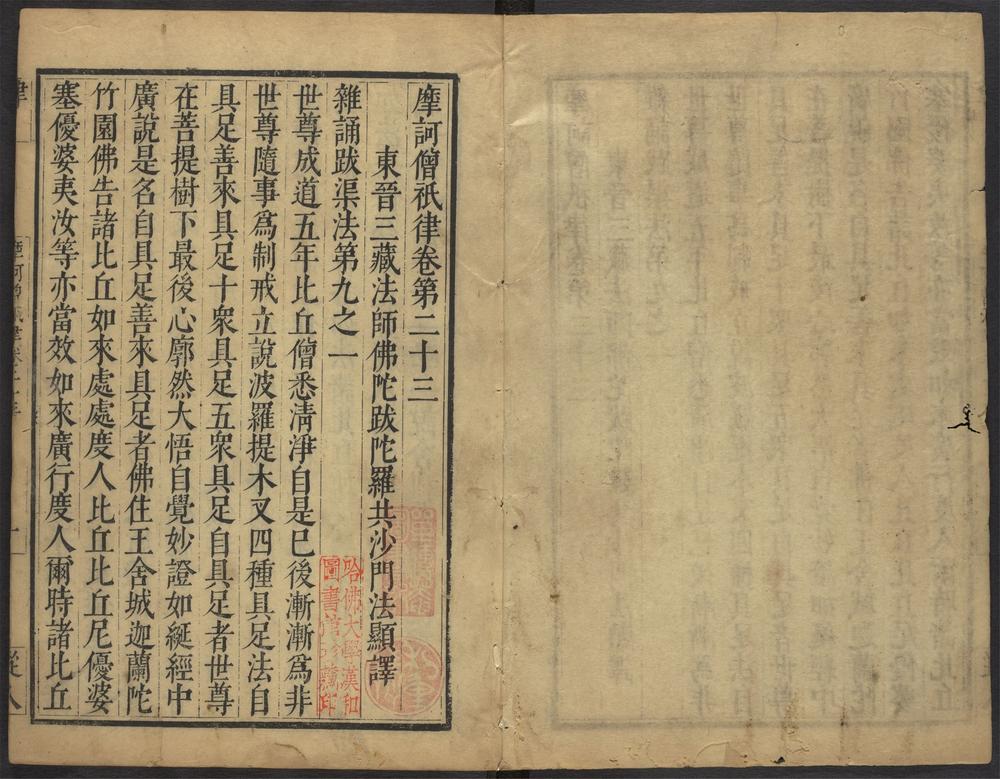 摩訶僧祇律卷第二十三
東晉三藏法師佛陀跋陀羅共沙門法顯譯
雜誦跋渠法第九之一
世尊成道五年比丘僧悉清淨自是已後漸漸爲非
世尊隨事爲制戒立說波羅提木叉四種具足法自
具足善來具足十衆具足五衆具足自具足者世尊
在菩提樹下最後心廓然大悟自覺妙證如綖經中
廣說是名自具足善來具足者佛住王舍城迦蘭陀
竹園佛告諸比丘如來處處度人比丘比丘尼優婆
塞優婆夷汝等亦當效如來廣行度人爾時諸比丘
哈佛大學漢和
圖書館珍藏印